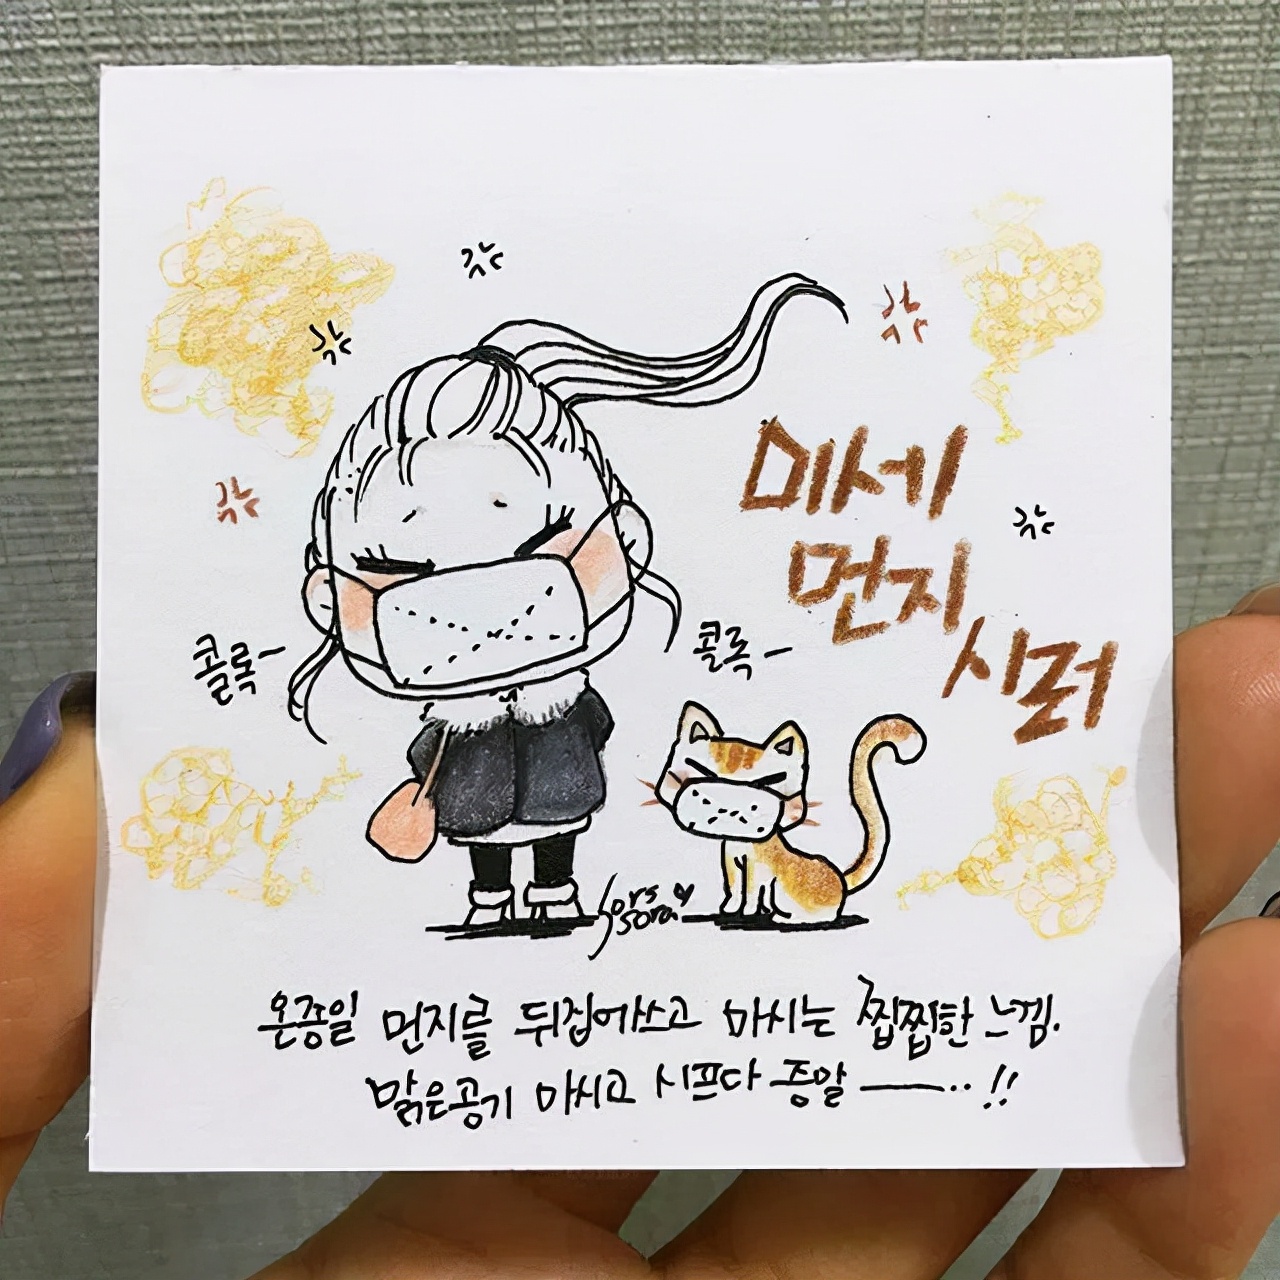 미세
먼지
시러
콜록~
콜록~
sorasora
온종일 먼지를 뒤집어쓰고 마시는 찝찝한 느낌.
맑은공기 마시고 시프다 증말 ——··!!